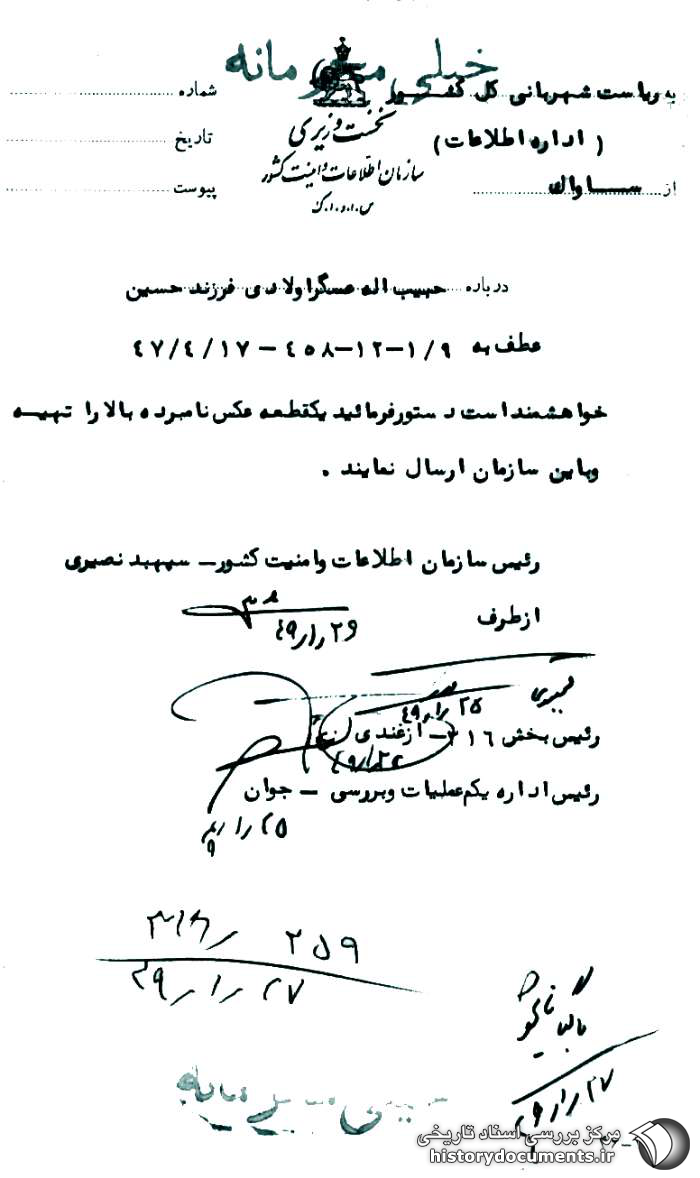 خیلی محرمانه
به ریاست شهربانی کل کشور
(اداره اطلاعات)
از ساواك
نخست وزیری
سازمان اطلاعات و امنیت کشور
س.ا.و.ا.ک
شماره
تاریخ
پیوست
درباره حبیب اله عسگراولادی فرزند حسین
عطف به ۴۷/۴/۱۷ – ۴۵۸–۱۲–۱/۹
خواهشمند است دستور فرمائید یکقطعه عکس نامبرده بالا را تهیه
وباین سازمان ارسال نمایند .
رئیس سازمان اطلاعات وامنیت کشور – سپهبد نصیری
از طرف
۴۹/۱/۲۶
۴۹/۱/۲۵
رئیس بخش ۳۱۶ – ازغندی
رئیس اداره یکم عملیات وبررسی – جوان
۲۵۹
۴۹/۱/۲۷
بایگانی شود
۴۹/۱/۲۷
خیلی محرمانه
مرکز بررسی اسناد تاریخی
historydocuments.ir